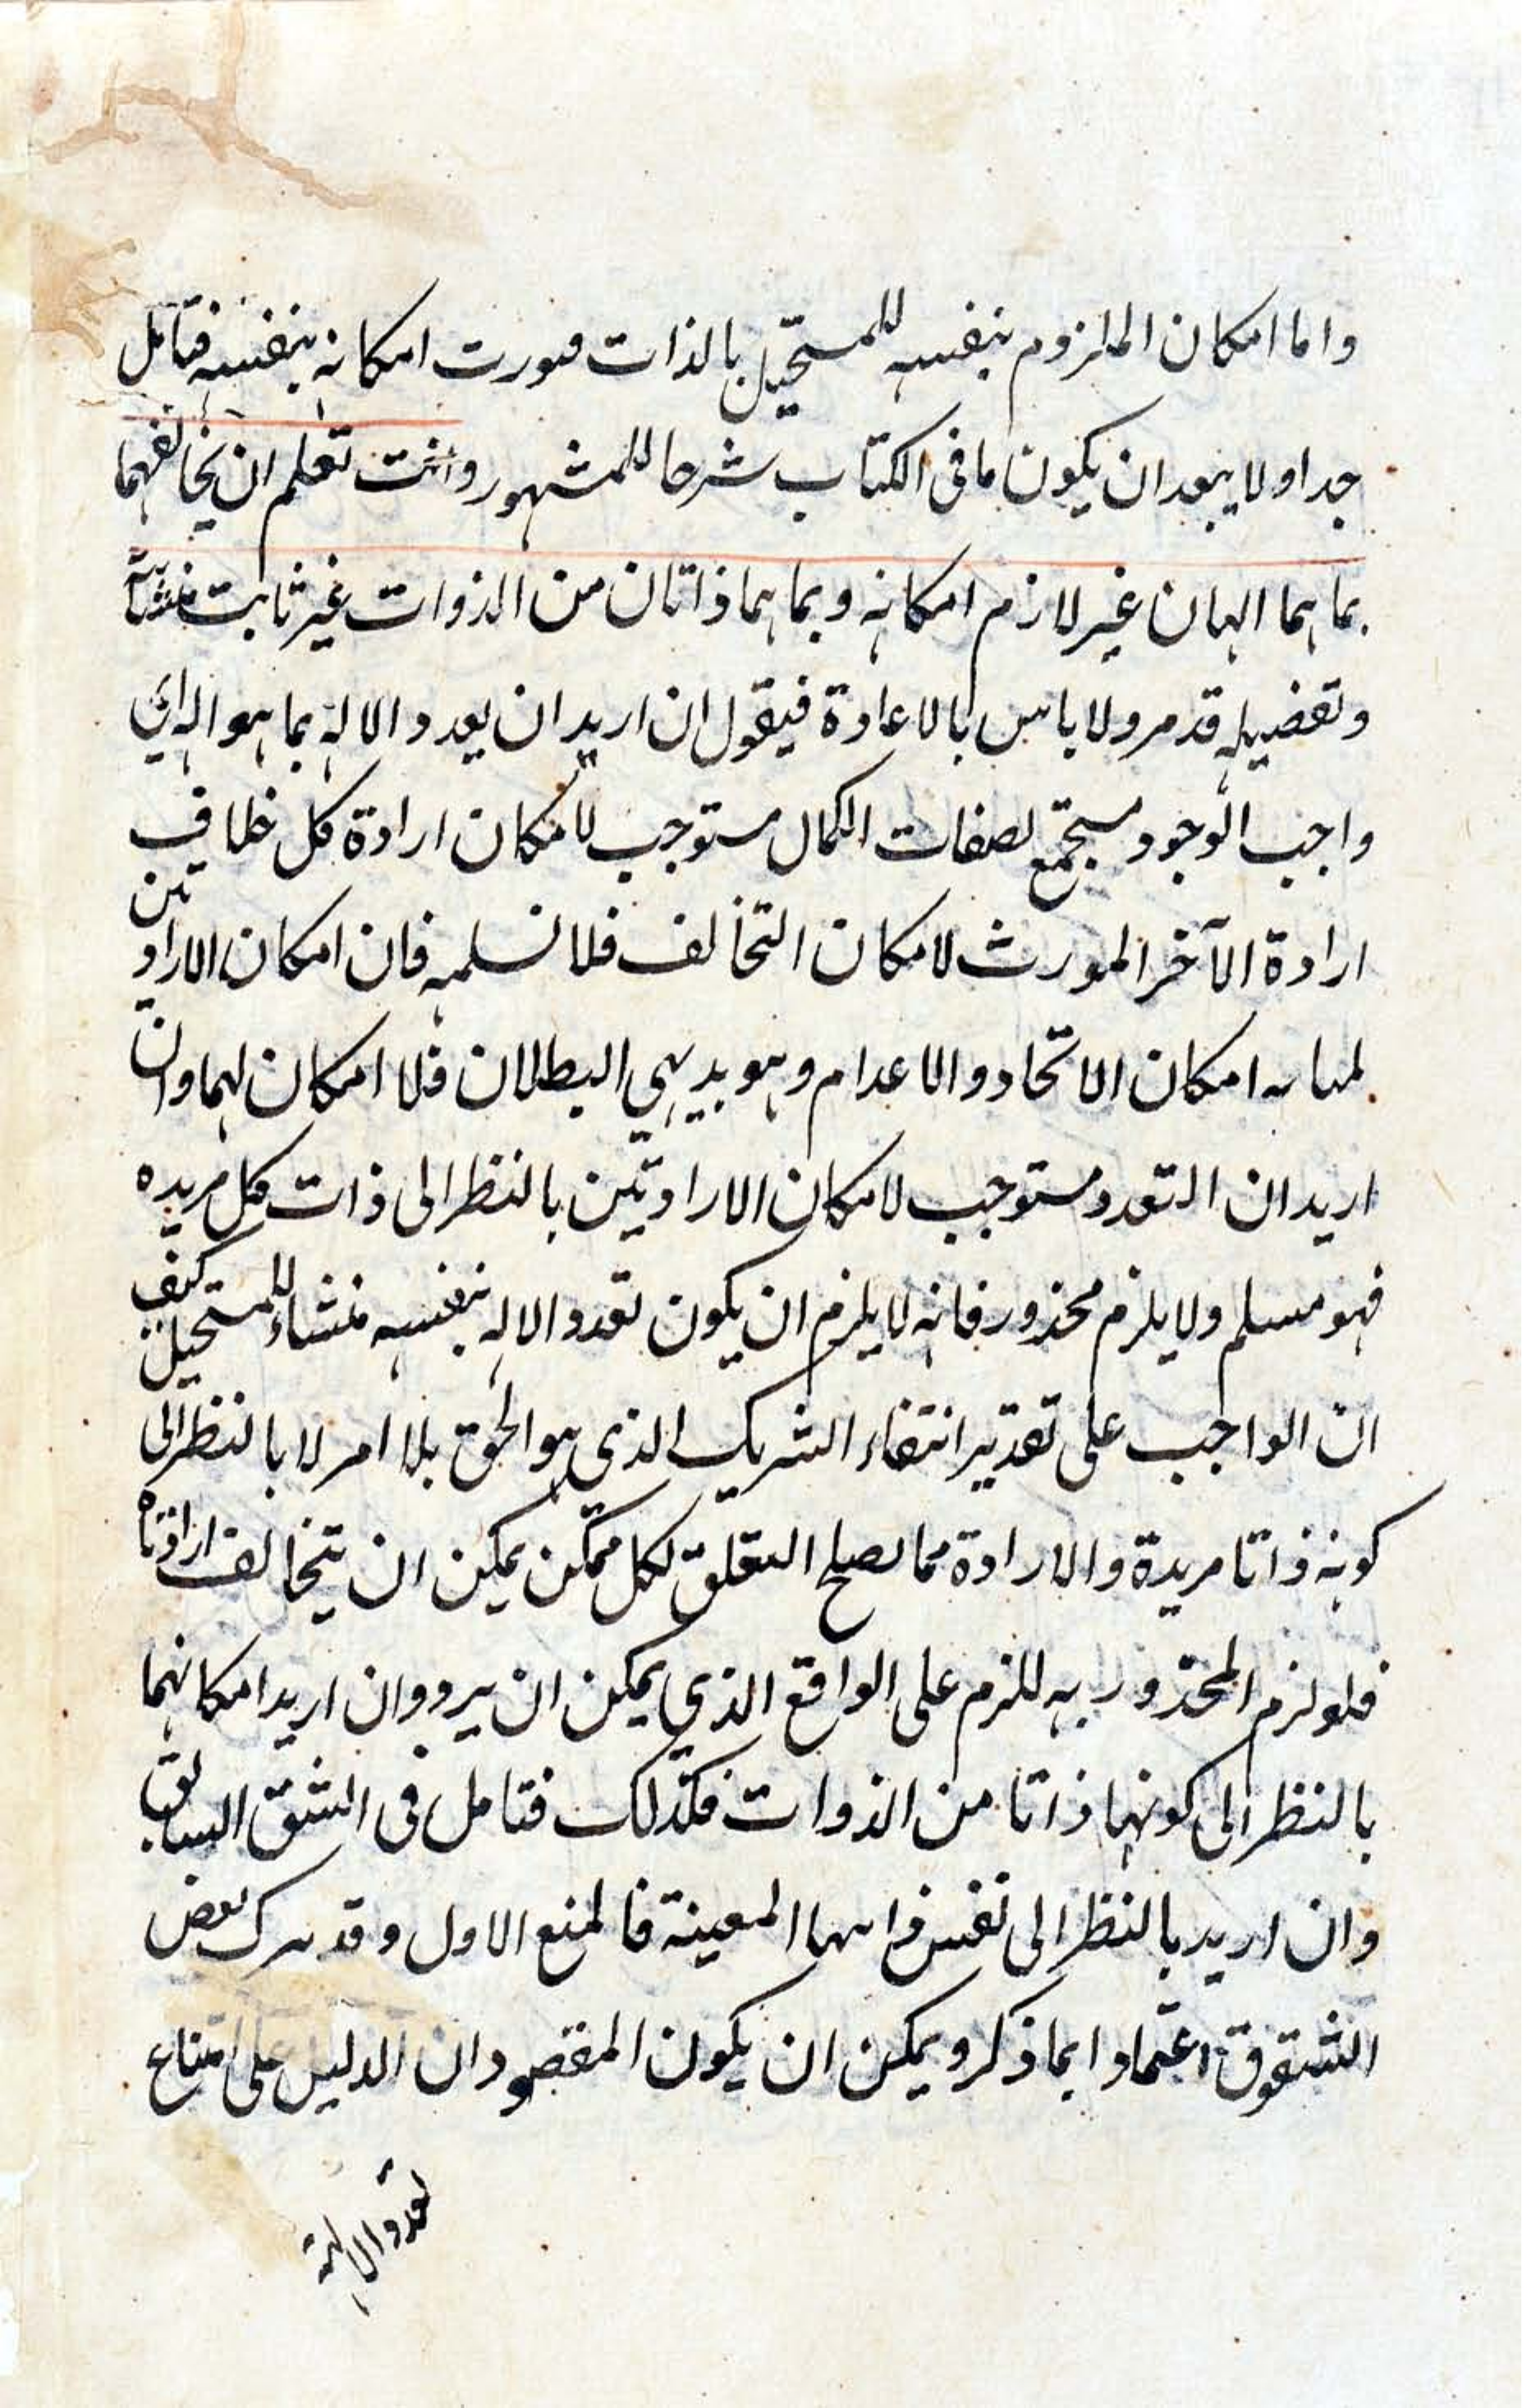 واما امكان الملزوم بنفسه للمستحيل بالذات فيورث امكانه بنفسه فتامل
جدا ولا يبعد ان يكون ما فى الكتاب شرحا للمشهور وانت تعلم ان تخالفهما
بما هما الهان غير لازم امكانه وبما هما ذاتان من الذوات غير ثابت منشائيته
وتفصيله قد مر ولا باس بالاعادة فيقول ان اريد ان تعدد الاله بما هو اله اي
واجب الوجود مستجمع لصفات الكمال مستوجب لامكان ارادة كل خلاف
ارادة الآخر المورث لامكان التخالف فلا نسلمه فان امكان الارادتين
امكان الاتحاد والاعدام وهو بديهي البطلان فلا امكان لهما وان
اريد ان التعدد مستوجب لامكان الارادتين بالنظر الى ذات كل مريده
فهو مسلم ولا يلزم محذور فانه لا يلزم ان يكون تعدد الاله بنفسه منشاء للمستحيل كيف
ان الواجب على تقدير انتفاء الشريك الذى هو الحق بلا امر لا بالنظر الى
كونه ذاتا مريدة والارادة مما يصلح التعلق لكل ممكن يمكن ان يتخالف ارادتاه
فلو لزم المحذور به للزم على الواقع الذي يمكن ان يرد وان اريد امكانهما
بالنظر الى كونهما ذاتا من الذوات فكذلك فتامل فى الشق السابق
وان اريد بالنظر الى نفس ذاتيهما المعينة فالمنع الاول وقد ترك بعض
الشقوق اعتمادا بما ذكر ويمكن ان يكون المقصود ان الدليل على امتناع
تعدد الالهة